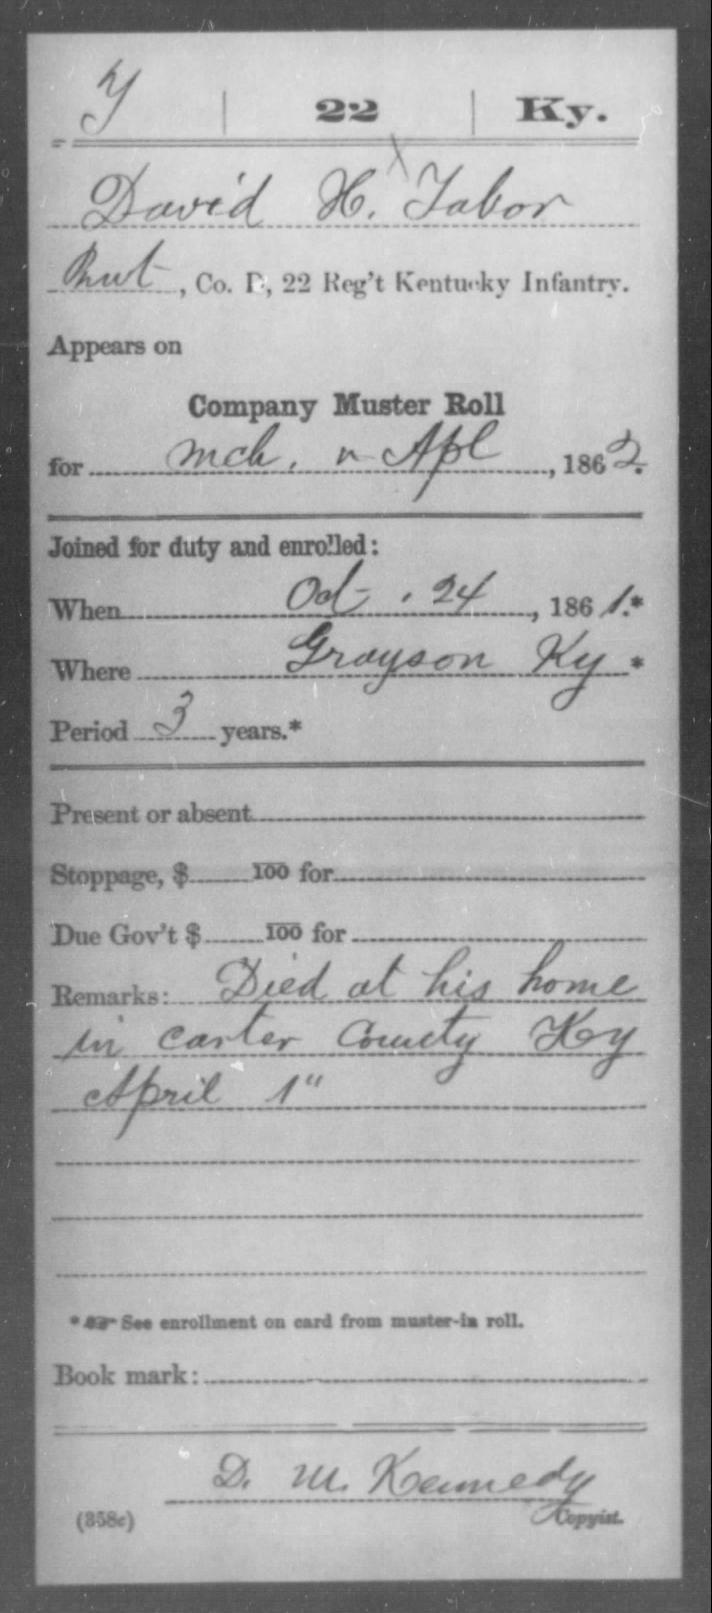 T | 22 | Ky.
David H. Tabor
Pvt, Co. D, 22 Reg't Kentucky Infantry.
Appears on
Company Muster Roll
for Mch. & Apl, 1862.
Joined for duty and enrolled:
When Oct. 24, 1861.*
Where Grayson Ky *
Period 3 years.*
Present or absent
Stoppage, $ 100 for
Due Gov't $ 100 for
Remarks: Died at his home
in Carter County Ky
April 1"
* See enrollment on card from muster-in roll.
Book mark:
D. M. Kennedy
(358c) Copyist.